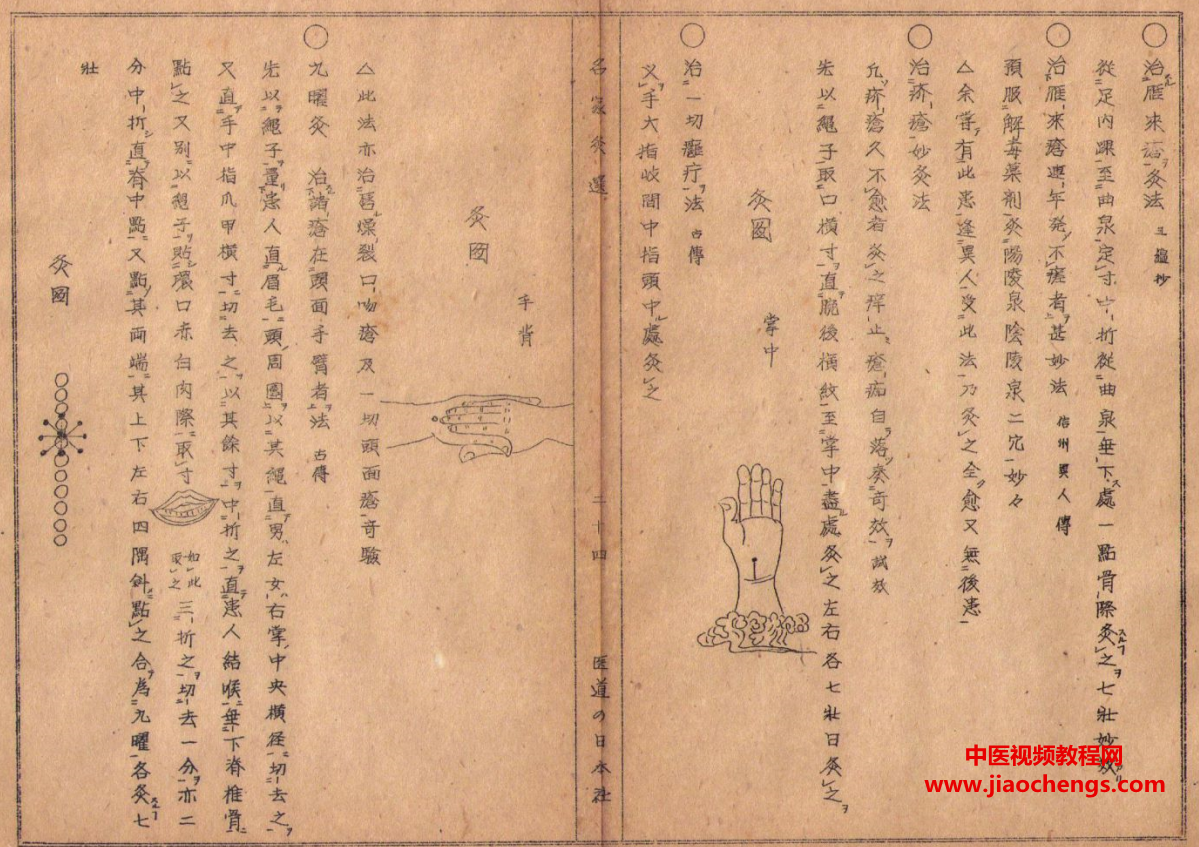 治雁来瘡灸法 三蘊抄
從足内踝至曲泉定寸中折從曲泉垂下處一點骨際灸之七壯妙效
治雁来瘡連年発不痊者甚妙法 信州異人傳
預服解毒藥剤灸陽陵泉陰陵泉二穴妙々
△余嘗有此患逢異人受此法乃灸之全愈又無後患
治疥瘡妙灸法
凢疥瘡久不愈者灸之痒止瘡痂自落矣奇效 試效
先以繩子取口横寸直腕後横紋至掌中盡處灸之左右各七壯日灸之
灸図
掌中
治一切癰疔法 古傳
又手大指岐間中指頭中處灸之
名家灸選
二十四
医道の日本社
手背
灸図
△此法亦治唇燥裂口吻瘡及一切頭面瘡奇驗
九曜灸 治諸瘡在頭面手臂者法 古傳
先以繩子量患人直眉毛頭周圍以其繩直男左女右掌中央横径切去之
又直手中指爪甲横寸切去之以其餘寸中折之直患人結喉垂下脊椎骨
點之又别以繩子貼張口赤白肉際取寸 如此取之 三折之切去一分亦二
分中折直脊中點又點其両端其上下左右四隅斜點之合為九曜各灸七
壯
灸図
中医视频教程网
www.jiaochengs.com